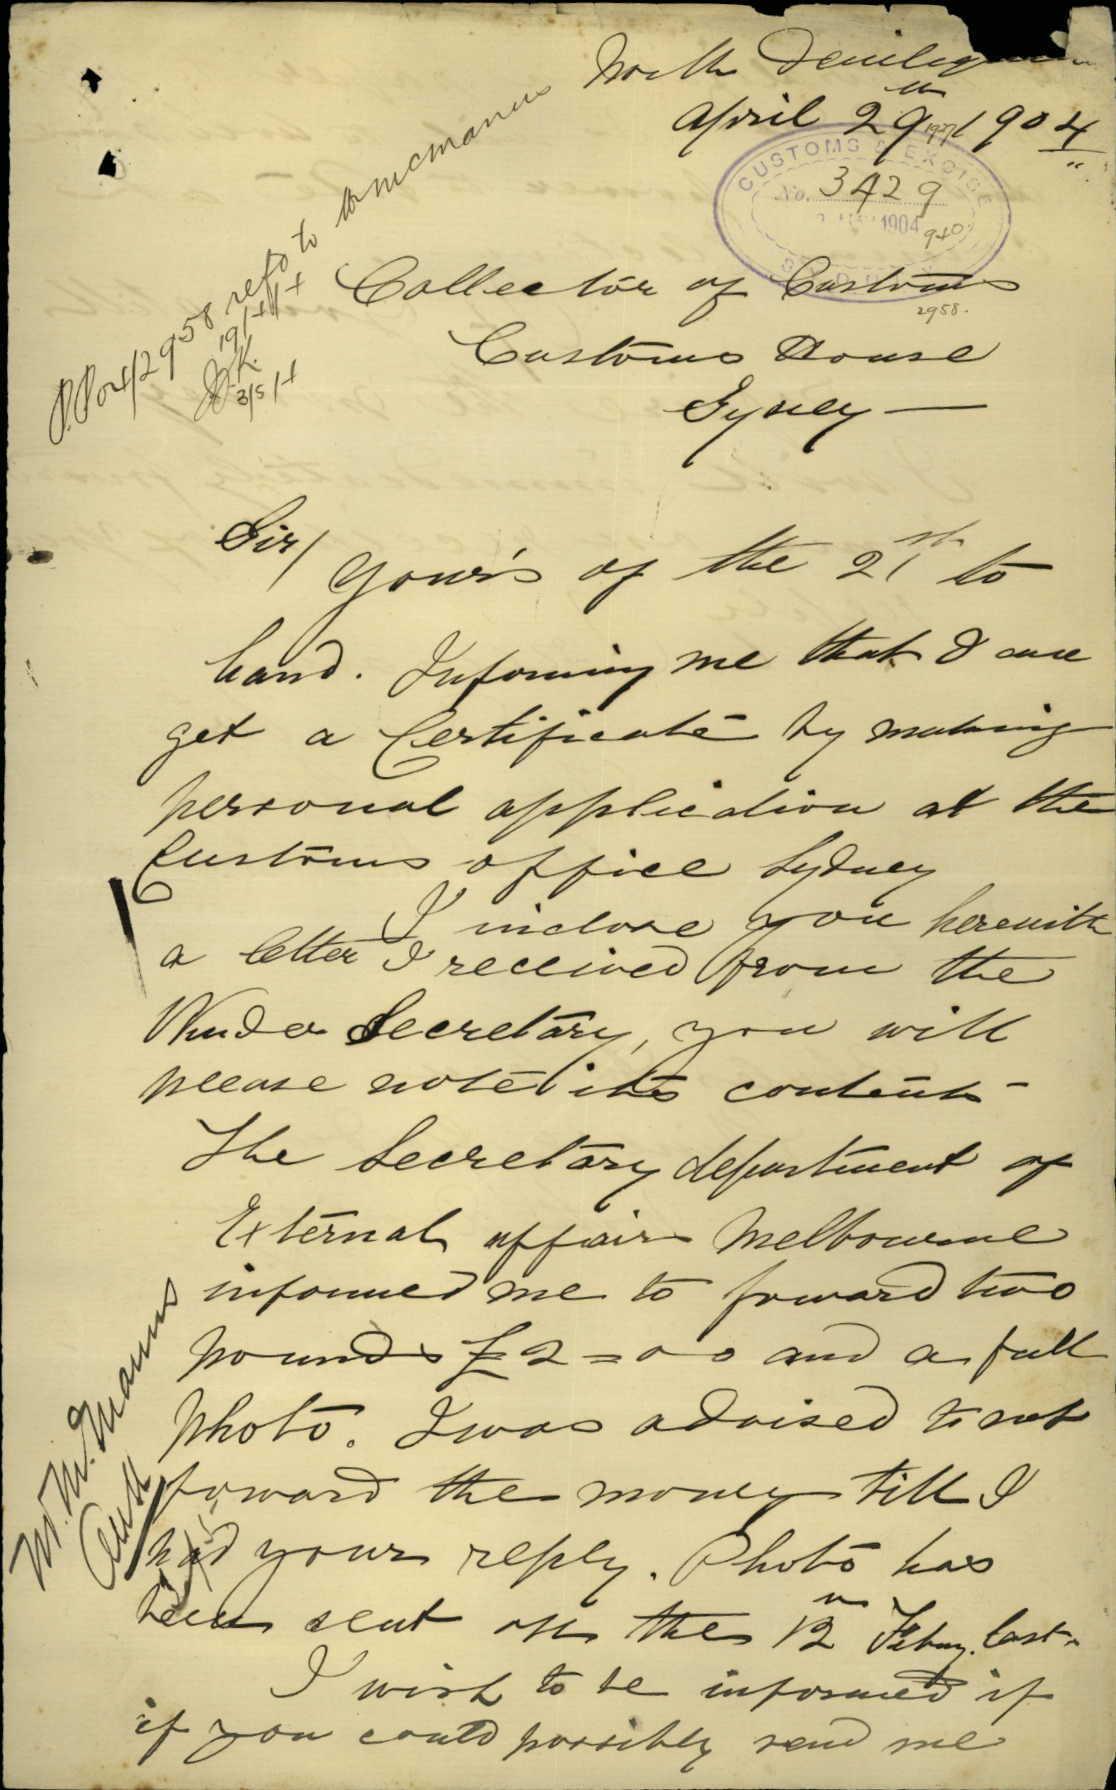 North Deniliq
April 29th 1904
CUSTOMS & EXCISE
No. 3429
1904
940
2958.
P.P 04/2958 refd to Mr McManus
19/4/4
J.K.
3/5/4
Collector of Customs
Customs House
Sydney —
Sir/
Your's of the 21st to
hand. Informing me that I can
get a Certificate by making
personal application at the
Customs office Sydney
I inclose you herewith
a letter I received from the
Under Secretary, you will
please note its contents -
The Secretary department of
External affairs Melbourne
informed me to foward two
pounds £2=00 and a full
photo. I was advised to not
foward the money till I
had your reply. Photo has
been sent on the 12th Febuy. last.
I wish to be informed if
if you could possibly send me
Mr. McManus